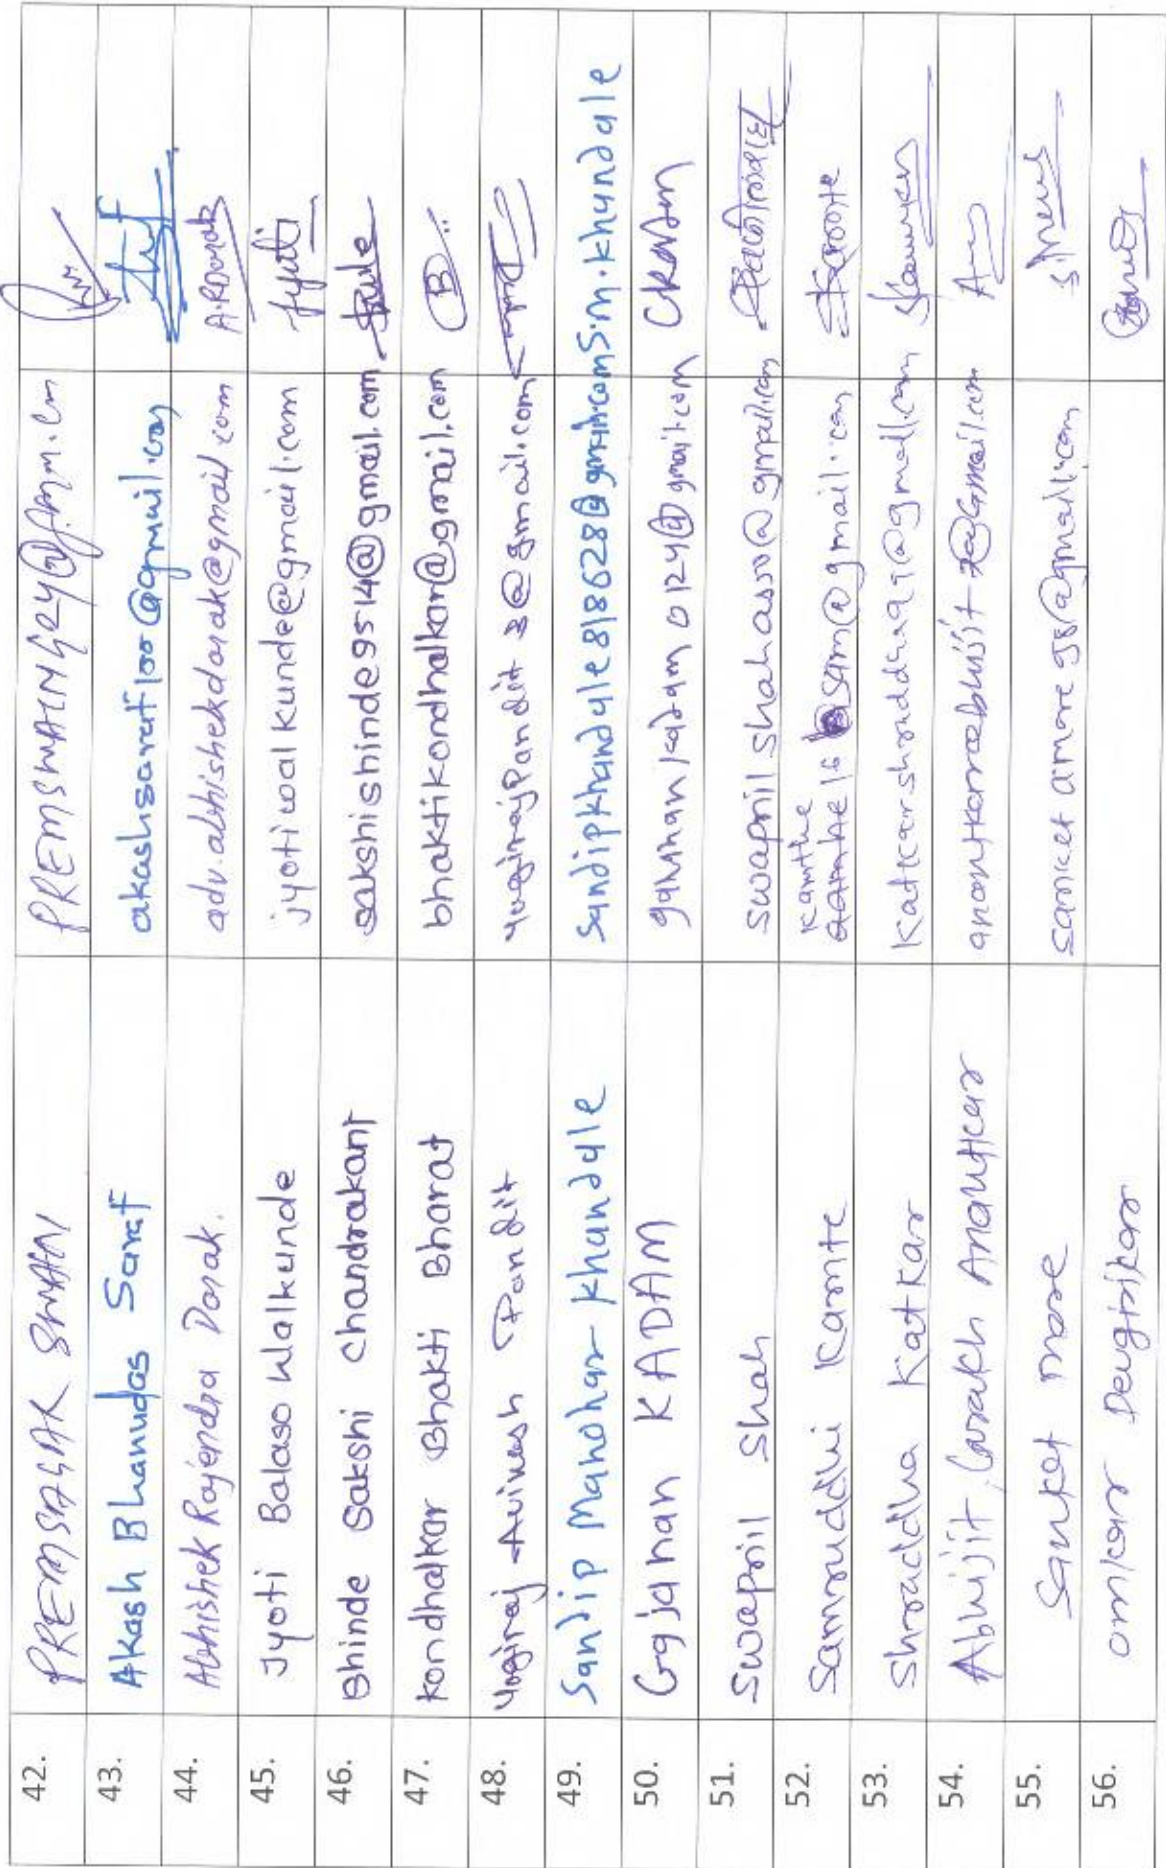 42. PREMSAGAR SWAMI PREMSWAMI4524@
43. Akash Bhanudas Saraf akashsaraf100@gmail.com
44. Abhishek Rajendra Donak. adv.abhishekdonak@gmail.com A.R.Donak
45. Jyoti Balaso Walkunde jyotiwalkunde@gmail.com Jyoti
46. Shinde Sakshi Chandrakant sakshishinde9514@gmail.com
47. Kondhalkar Bhakti Bharat bhaktikondhalkar@gmail.com B
48. Yogiraj Avinash Pandit yogirajPandit3@gmail.com
49. Sandip Manohar Khandale Sandipkhandale818628@gmail.com S.m.khandale
50. Gajanan KADAM gajanankadam0124@gmail.com
51. Swapnil Shah swapnilshahasso@gmail.com
52. Samruddhi Kamte Kamthe 16 sam@gmail.com
53. Shraddha Katkar Katkarshraddha99@gmail.com
54. Abhijit Gorakh Anantkar anantkarabhijit7@Gmail.com
55. Sanket more sanketamore98@gmail.com
56. omkar Deugirikar